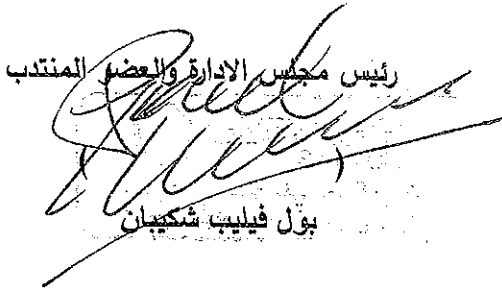 رئيس مجلس الادارة والعضو المنتدب
( )
بول فيليب شكيبان